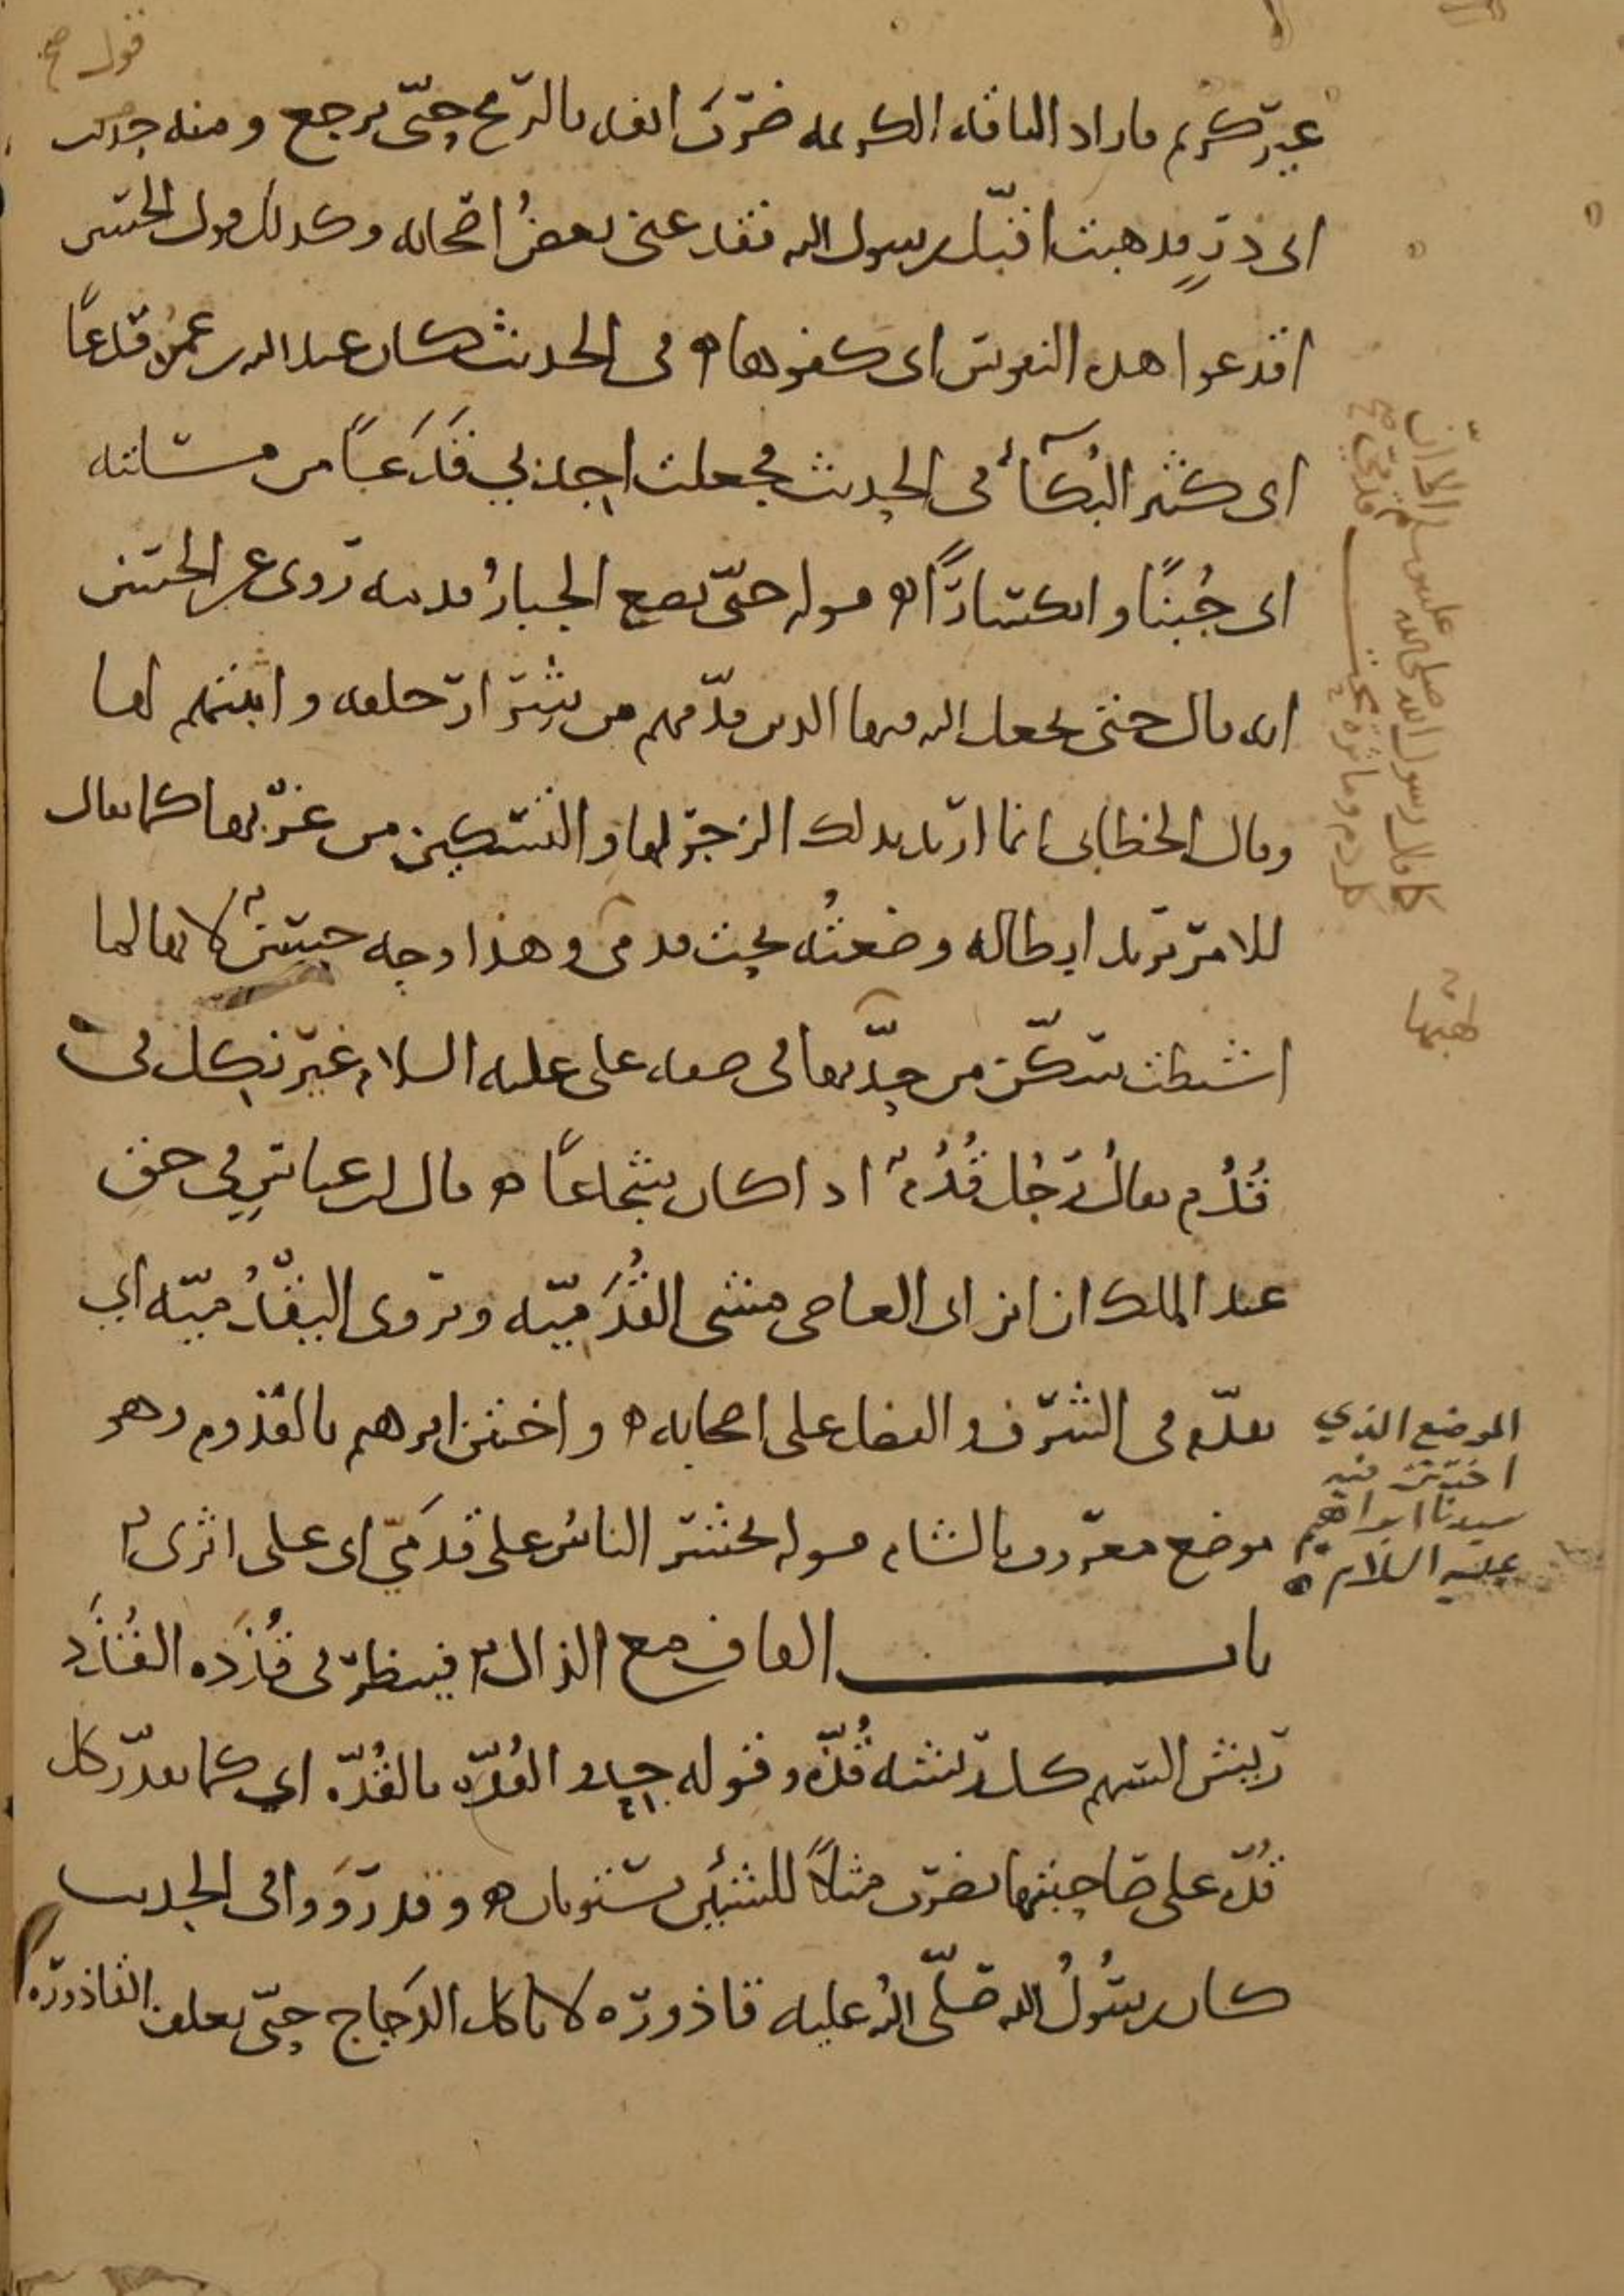 قول صح
غير كريم فاراد الناقه الكريمه ضرب انفه بالرمح حتى يرجع ومنه حديث
ابى ذر فذهبت اقبل رسول الله فقدعنى بعض اصحابه وكذلك قول الحسن
اقدعوا هذه النفوس اى كفوها ه فى الحديث كان عبدالله بن عمر قدعا
اى كثير البكاء فى الحديث فجعلت اجد بي قدعا من مسائلته
اى جبنا وانكسارا ه قوله حتى يضع الجبار قدمه روى عن الحسن
انه قال حتى يجعل الله فيها الذين قدمهم من شرار خلقه واثبتهم لها
وقال الخطابى انما اريد بذلك الزجر لها والتسكين من غربها كما يقال
للامر تريد ابطاله وضعته تحت قدمى وهذا وجه حسن لانها لما
اشتطت سكن من حدتها فى صفه على عليه السلام غير نكل فى
قدم يقال رجل قدم اذا كان شجاعا ه قال ابن عباس في حق
عبد الملك ان ابن ابى العاصى مشى القدميه ويروى اليقدميه اي
تقدم فى الشرف والفضل على اصحابه ه واختتن ابرهيم بالقدوم وهو
موضع معروف بالشام قوله يحشر الناس على قدمي اى على اثرى
باب القاف مع الذال فينظر فى قذذه القذذ
ريش السهم كل ريشه قذه وقوله حذو القذه بالقذه اي كما تقدر كل
قذه على صاحبتها يضرب مثلا للشيئين يستويان ه وقد رووا فى الحديث
كان رسول الله صلى الله عليه قاذوره لا ياكل الدجاج حتى يعلف القاذوره
كما قال رسول الله صلى الله عليه وسلم الا ان
كل دم وماثرة تحت قدمي صح
لهبها
الموضع الذي
اختتن فيه
سيدنا ابراهيم
عليه السلام